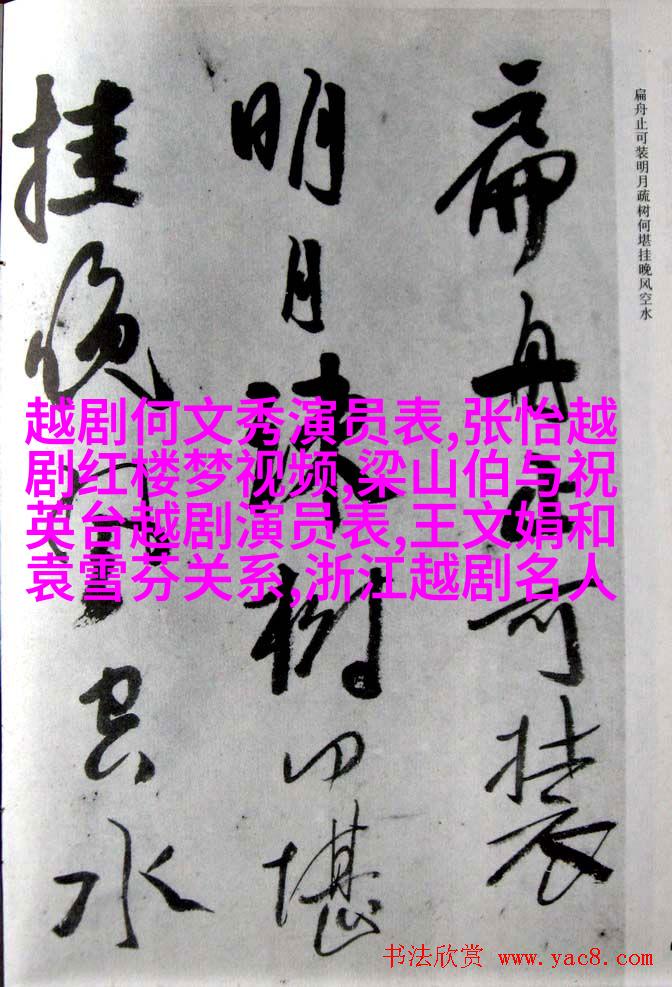 扁舟止可装
明月疏树何堪
挂晚风空水
扁舟止可装明月疏树何堪挂晚风空水
越剧何文秀演员表,张怡越
剧红楼梦视频,梁山伯与祝
英台越剧演员表,王文娟和
袁雪芬关系,浙江越剧名人
书法欣赏 www.yac8.com